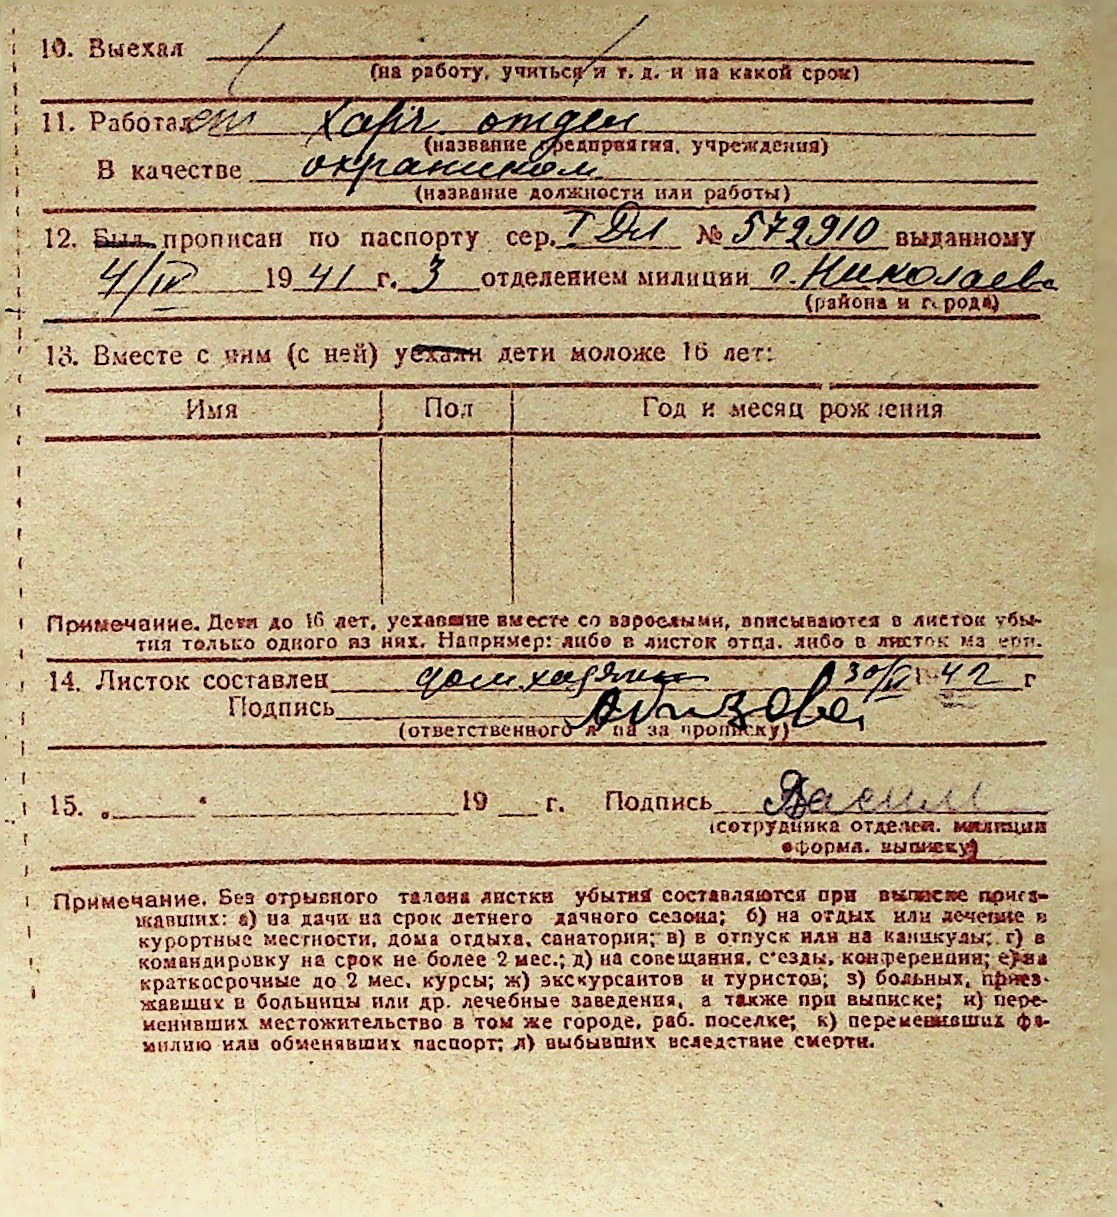 10. Выехал
(на работу, учиться и т. д. и на какой срок)
11. Работает Харч. отдел
(название предприятия, учреждения)
В качестве охраником
(название должности или работы)
12. Был прописан по паспорту сер. № 572910 выданному
4/IV 1941 г. 3 отделением милиции г. Николаева
(района и города)
13. Вместе с ним (с ней) уехали дети моложе 16 лет:
Имя Пол Год и месяц рождения
Примечание. Дети до 16 лет, уехавшие вместе со взрослыми, вписываются в листок убы-
тия только одного из них. Например: либо в листок отца, либо в листок матери.
14. Листок составлен 30/ 1942 г
Подпись
(ответственного лица за прописку)
15. „ " 19 г. Подпись
(сотрудника отделен. милиции
оформл. выписку)
Примечание. Без отрывного талона листки убытия составляются при выписке приез-
жавших: а) на дачи на срок летнего дачного сезона; б) на отдых или лечение в
курортные местности, дома отдыха, санатория; в) в отпуск или на каникулы; г) в
командировку на срок не более 2 мес.; д) на совещания, с'езды, конференции; е) на
краткосрочные до 2 мес. курсы; ж) экскурсантов и туристов; з) больных, приез-
жавших в больницы или др. лечебные заведения, а также при выписке; и) пере-
менивших местожительство в том же городе, раб. поселке; к) переменивших фа-
милию или обменявших паспорт; л) выбывших вследствие смерти.